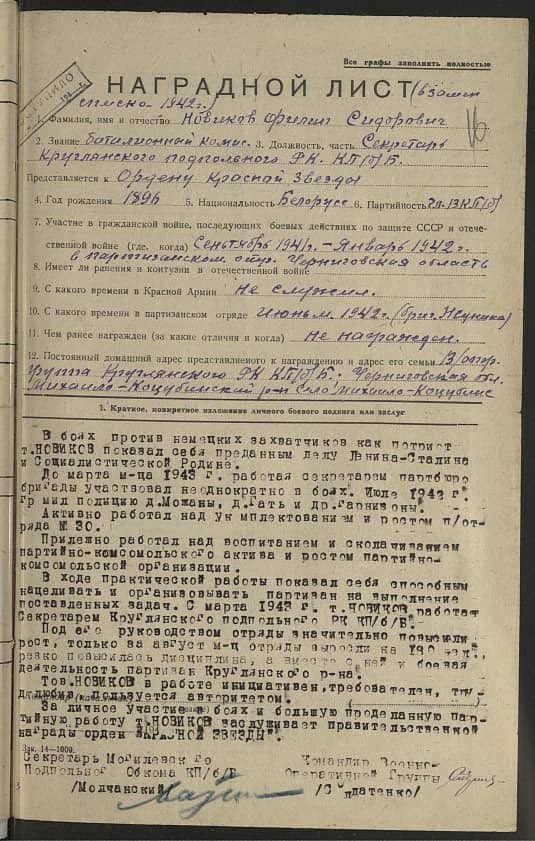 Все графы заполнять полностью
НАГРАДНОЙ ЛИСТ (взамен
списка 1942 г.)
1. Фамилия, имя и отчество Новиков Филип Сидорович
16
2. Звание баталионный комис. 3. Должность, часть Секретарь
Круглянского подпольного РК КП/б/Б.
Представляется к Ордену Красной Звезды
4. Год рождения 1896 5. Национальность Белорусс 6. Партийность
7. Участие в гражданской войне, последующих боевых действиях по защите СССР и отече-
ственной войне (где, когда) Сентябрь 1941г. – Январь 1942 г.
в партизанском отр. Черниговская область
8. Имеет ли ранения и контузии в отечественной войне
9. С какого времени в Красной Армии не служил.
10. С какого времени в партизанском отряде Июнь м. 1942 г.
11. Чем ранее награжден (за какие отличия и когда) Не награжден.
12. Постоянный домашний адрес представляемого к награждению и адрес его семьи В/опер.
группа Круглянского РК КП/б/Б. Черниговская обл.
Михайло-Коцубинский р-н Село Михайло-Коцубинс
1. Краткое, конкретное изложение личного боевого подвига или заслуг
В боях против немецких захватчиков как потриот
т.НОВИКОВ показал себя преданным делу Ленина-Сталина
и Социалистической Родине.
До марта м-ца 1943 г. работая секретарем партбюро
бригады участвовал неоднократно в боях. Июле 1943 г.
гр мил полицию д.Можаны, д. ать и др.гарнизоны.
Активно работал над ук мплектованием и ростом п/от-
ряда № 30.
Прилежно работал над воспитанием и сколачиванием
партийно-комсомольского актива и ростом партийно-
комсомольской организации.
В ходе практической работы показал себя способным
нацеливать и организовывать партизан на выполнение
поставленных задач. С марта 1943 г. т.НОВИКОВ работает
Секретарем Круглянского подпольного РК КП/б/Б.
Под его руководством отряды значительно повысили
рост, только за август м-ц отряды выросли на
резко повысилась дисциплина, а вместе с ней и боевая
деятельность партизан Круглянского р-на.
Тов.НОВИКОВ в работе инициативен,требователен, тру-
долюбив, пользуется авторитетом.
За личное участие в боях и большую проделанную пар-
тийную работу т.НОВИКОВ заслуживает правительственной
награды орден "КРАСНОЙ ЗВЕЗДЫ".
Зак. 14—1000.
Секретарь Могилевск го
Подпольног Обкома КП/б/Б
/Молчанский/
Командир Военно-
Оперативной Группы
/С лдатенко/